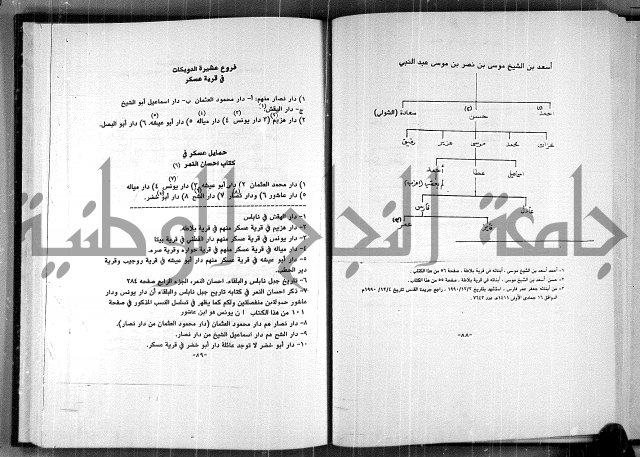 أسعد بن الشيخ موسى بن نصر بن موسى عبد النبي
أحمد
حسن
سعادة (الشولي)
محمد
موسى
عزيز
رفيق
اسماعيل
عطا
أحمد
عادل
فارس
فايز
عمر
١- أحمد أسعد بن الشيخ موسى ، أبنائه في قرية بلاطة ، صفحة ٥٦ من هذا الكتاب .
٢- حسن أسعد بن الشيخ موسى ، أبنائه في قرية بلاطة ، صفحة ٥٥ من هذا الكتاب .
٣- من أبنائه جعفر عمر فارس ، استشهد بتاريخ ١٩٩٠/١٢/٣ ، راجع جريدة القدس تاريخ ١٩٩٠/١٢/٤م
الموافق ١٦ جمادى الأولى ١٤١١هـ عدد ٧٦٤٢.
-٨٨-
فروع عشيرة الدويكات
في قرية عسكر
١) دار نصار منهم: أ- دار محمود العثمان ب- دار اسماعيل أبو الشيخ
ج- دار الهقش (١)
٢) دار هزيم (٢) ٣) دار يونس (٣) ٤) دار مياله (٤) ٥) دار أبو عيشه (٥) ٦) دار أبو البصل.
حمايل عسكر في
كتاب احسان النمر (٦)
١) دار محمود العثمان ٢) دار أبو عيشه ٣) دار يونس (٧) ٤) دار مياله
٥) دار عاشور ٦) ودار نصار (٨) ٧) دار الشح (٩) ٨) دار أبو خضر (١٠).
١- دار الهقش في نابلس
٢- دار هزيم في قرية عسكر منهم في قرية بلاطة
٣- دار يونس في قرية عسكر منهم دار القطشي في قرية بيتا
٤- دار مياله في قرية عسكر منهم في قرية حواره وقرية صره.
٥- دار أبو عيشه في قرية عسكر منهم دار أبو عيشه في قرية روجيب وقرية
دير الحطب.
٦- تاريخ جبل نابلس والبلقاء، احسان النمر، الجزء الرابع صفحة ٢٨٤
٧- ذكر احسان النمر في كتابه تاريخ جبل نابلس والبلقاء أن دار يونس ودار
عاشور حمولتين منفصلتين ولكم كما يظهر في تسلسل النسب المذكور في صفحة
١٠١ من هذا الكتاب ، أن يونس هو ابن عاشور
٨- دار نصار هم دار محمود العثمان (دار محمود العثمان من دار نصار).
٩- دار الشح هم دار اسماعيل الشيخ من دار نصار.
١٠- دار أبو خضر لا توجد عائلة دار أبو خضر في قرية عسكر.
-٨٩-
جامعة النجاح الوطنية